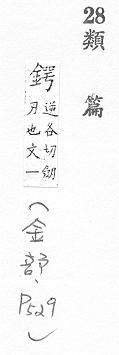 28 類篇
鍔 逆各切劒
刃也文一
(金部、P529)